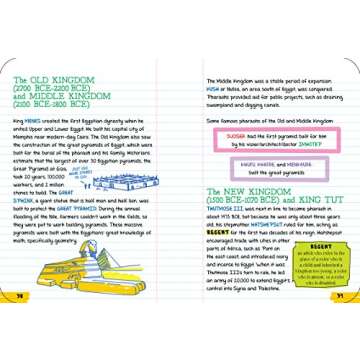 The OLD KINGDOM
(2700 BCE-2200 BCE)
and MIDDLE KINGDOM
(2100 BCE-1800 BCE)
King MENES created the first Egyptian dynasty when he
united Upper and Lower Egypt. He built his capital city of
Memphis near modern-day Cairo. The Old Kingdom also saw
the construction of the great pyramids of Egypt, which were
built for the burial of the pharaoh and his family. Historians
estimate that the largest of over 30 Egyptian pyramids, the
Great Pyramid at Giza,
took 20 years, 100,000
workers, and 2 million
stones to build. The GREAT
SPHINX, a giant statue that is half man and half lion, was
built to protect the GREAT PYRAMID. During the annual
flooding of the Nile, farmers couldn't work in the fields, so
they were put to work building pyramids. These massive
pyramids were built with the Egyptians' great knowledge of
math, specifically geometry.
38
The Middle Kingdom was a stable period of expansion.
KUSH, or Nubia, an area south of Egypt, was conquered.
Pharaohs provided aid for public projects, such as draining
swampland and digging canals.
Some famous pharaohs of the Old and Middle Kingdom:
DJOSER had the first pyramid built for him
by his vizier/architect/doctor IMHOTEP
KHUFU, KHAFRE, and MENKAURE
built the great pyramids
The NEW KINGDOM
(1500 BCE-1070 BCE) and KING TUT
THUTMOSE III was in line to become pharaoh in
about 1473 BCE, but because he was only about three years
old, his stepmother HATSHEPSUT ruled for him, acting as
REGENT for the first two decades of his reign. Hatshepsut
encouraged trade with cities in
other parts of Africa, such as Punt on
the east coast, and introduced ivory
and incense to Egypt. When it was
Thutmose III's turn to rule, he led
an army of 20,000 to extend Egypt's
control into Syria and Palestine.
REGENT
39